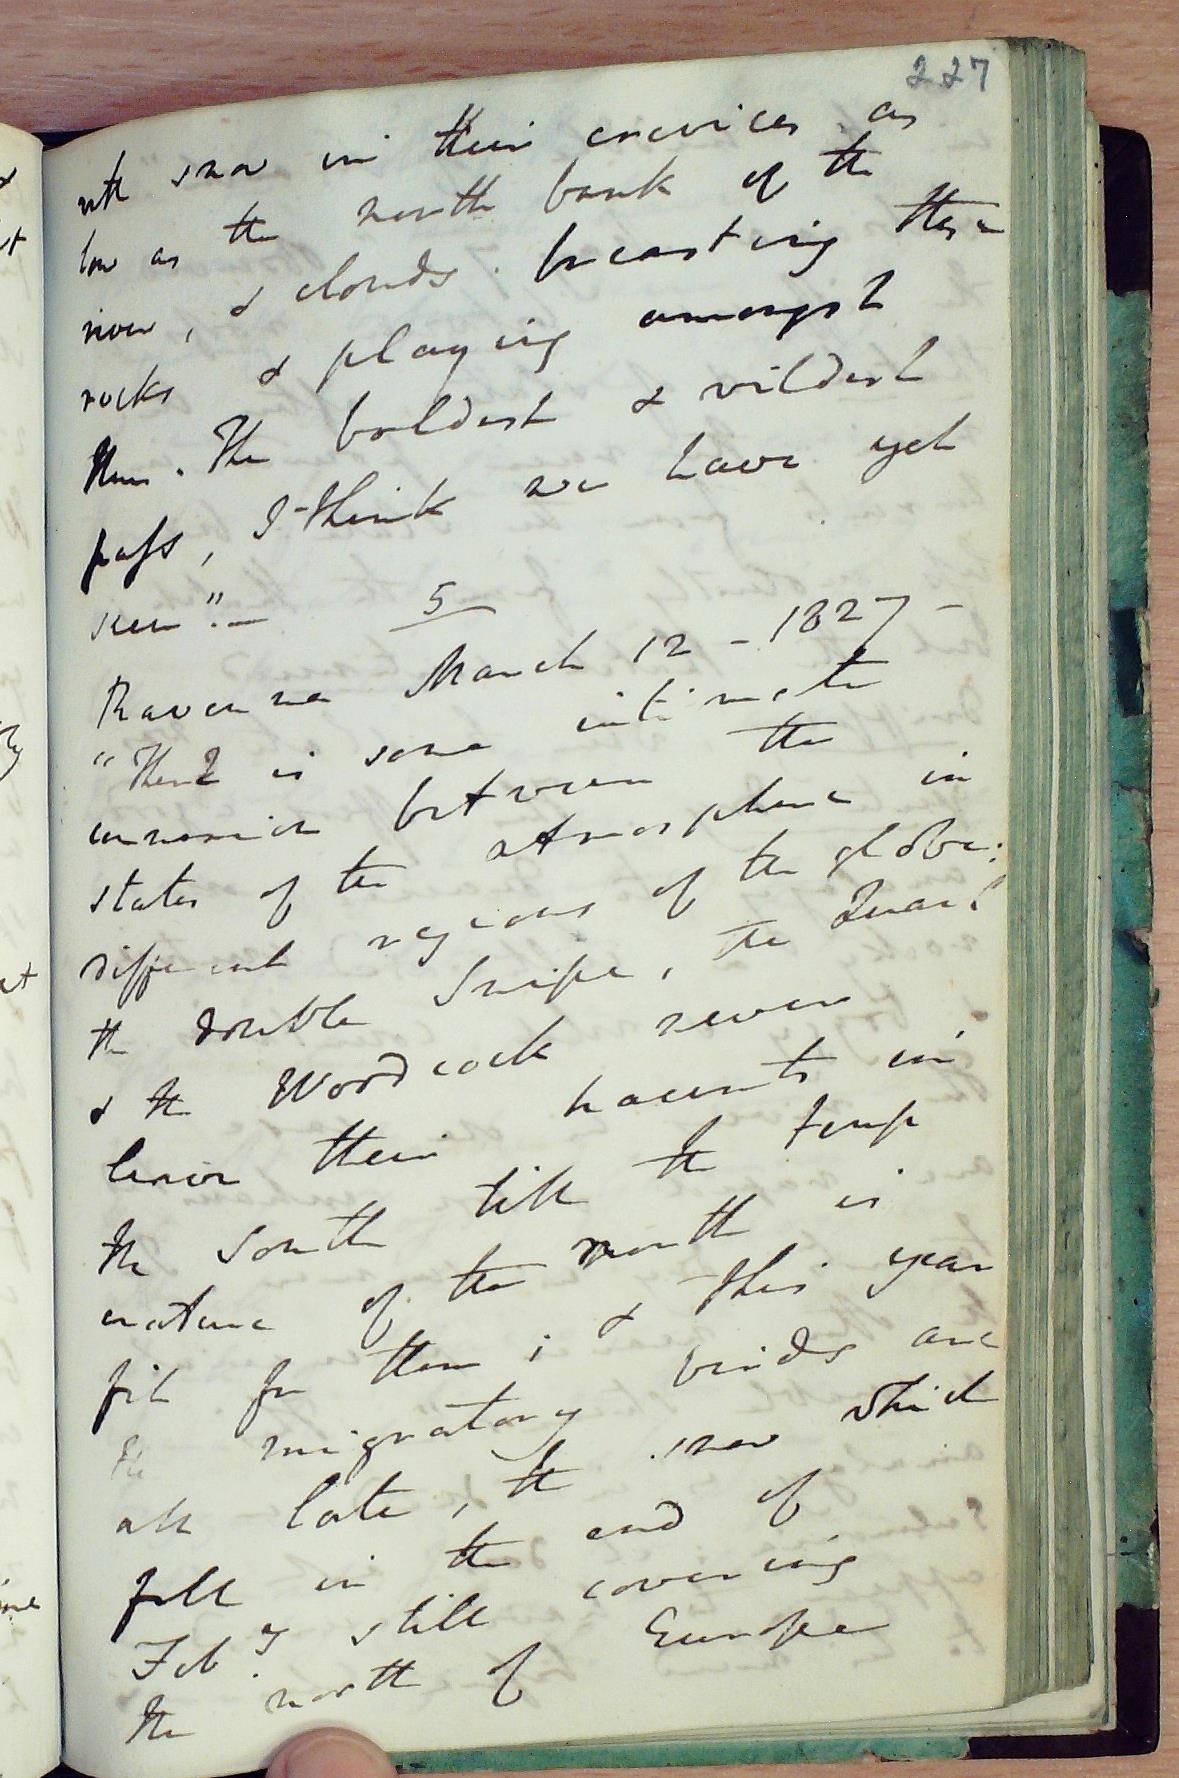 227
with snow in their crevices as
low as the north bank of the
river, & clouds breasting these
rocks & playing amongst
them. The boldest & wildest
pass, I think we have yet
seen".—
5
Ravenna March 12 - 1827 -
"There is some intimate
connexion between the
states of the atmosphere in
different regions of the globe:
the double Snipe, the Quail
& the Woodcock never
leave their haunts in
the South till the temp
erature of the north is
fit for them; & this year
the migratory birds are
all late, the snow which
fell in the end of
Feby. still covering
the north of Europe